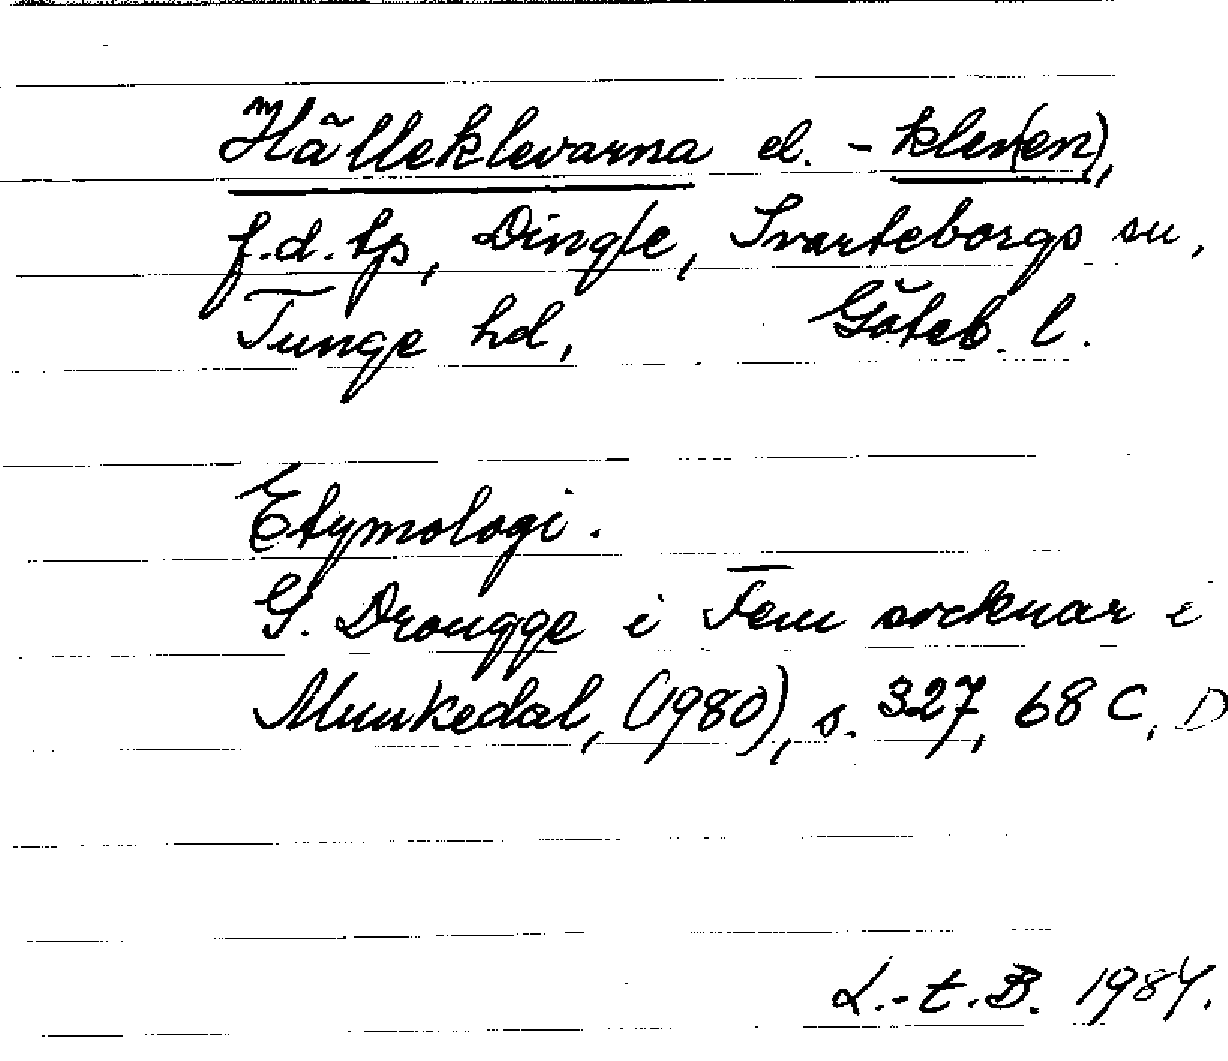 Hälleklevarna el. -klev(en),
f.d. tp, Dingle, Svarteborgs sn,
Tunge hd, Göteb. l.
Etymologi.
G. Drougge i Fem socknar i
Munkedal, (1980), s. 327, 68 C, D
L.-t. B. 1984.